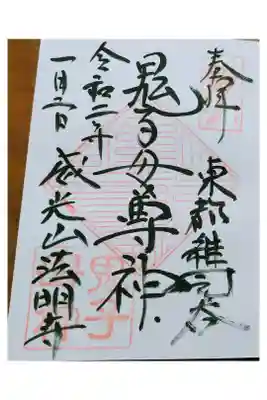 奉拝
東都雑司谷
鬼子母尊神
令和二年
一月三日
威光山法明寺